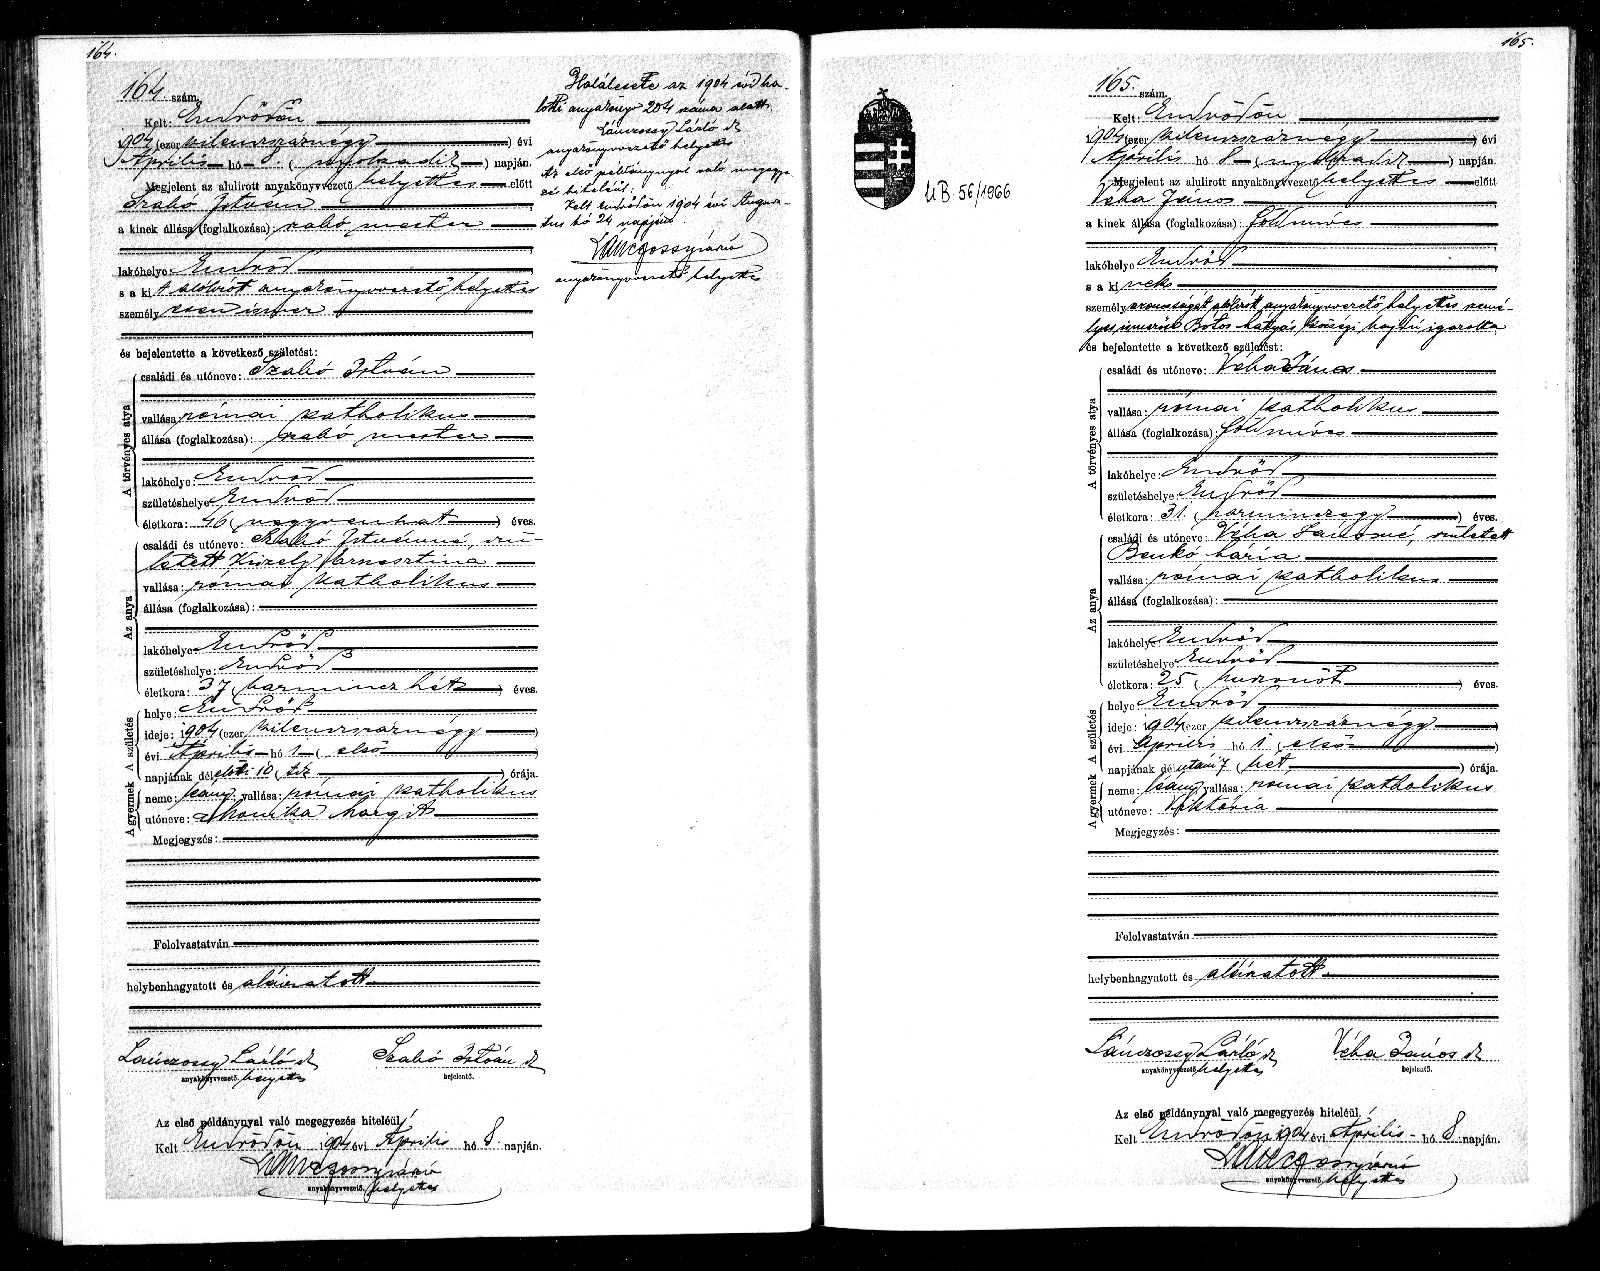 164.
164. szám.
Kelt: Endrődön
1904 (ezer kilenczszáznégy) évi
Április hó 8. (nyolczadik) napján.
Megjelent az alulirott anyakönyvvezető helyettes előtt
Szabó István
a kinek állása (foglalkozása): szabó mester
lakóhelye: Endrőd
s a ki t alólirott anyakönyvvezető helyettes
személyesen ismer
és bejelentette a következő születést:
A törvényes atya
családi és utóneve: Szabó István
vallása: római katholikus
állása (foglalkozása): szabó mester
lakóhelye: Endrőd
születéshelye: Endrőd
életkora: 46 (negyvenhat) éves.
Az anya
családi és utóneve: Szabó Istvánné, szü-
letett Ernesztina
vallása: római katholikus
állása (foglalkozása):
lakóhelye: Endrőd
születéshelye: Endrőd
életkora: 37 (harminczhét) éves.
A születés
helye: Endrőd
ideje: 1904 (ezer kilenczszáznégy)
évi Április hó 1 (első)
napjának délelőtti 10 (tíz) órája.
A gyermek
neme: leány, vallása: római katholikus
utóneve: Mónika Margit
Megjegyzés:
Felolvastatván
helybenhagyatott és aláiratott
Lánczossy László sk
anyakönyvvezető helyettes
Szabó István sk
bejelentő.
Az első példánynyal való megegyezés hiteléül!
Kelt Endrődön 1904 évi Április hó 8 napján.
Lánczossy
anyakönyvvezető helyettes
Halálesete az 1904 évi ha-
lotti anyakönyv 204 száma alatt.
Lánczossy László sk
anyakönyvvezető helyettes
Az első példánynyal való megegye-
zés hiteléül:
Kelt Endrődön 1904 évi Augusz-
tus hó 24 napján
Lánczossy
anyakönyvvezető helyettes
UB 56/1966
165.
165. szám.
Kelt: Endrődön
1904 (ezer kilenczszáznégy) évi
Április hó 8 (nyolczadik) napján.
Megjelent az alulirott anyakönyvvezető helyettes előtt
Véha János
a kinek állása (foglalkozása): földműves
lakóhelye: Endrőd
s a ki nek
személyazonosságát alólirott anyakönyvvezető helyettes szemé-
lyes ismerőse Bótos Mátyás községi hajdú igazolta
és bejelentette a következő születést:
A törvényes atya
családi és utóneve: Véha János
vallása: római katholikus
állása (foglalkozása): földműves
lakóhelye: Endrőd
születéshelye: Endrőd
életkora: 31. (harminczegy) éves.
Az anya
családi és utóneve: Véha Jánosné, született
Benkó Mária
vallása: római katholikus
állása (foglalkozása):
lakóhelye: Endrőd
születéshelye: Endrőd
életkora: 25 (huszonöt) éves.
A születés
helye: Endrőd
ideje: 1904 (ezer kilenczszáznégy)
évi Április hó 1 (első)
napjának délutáni 7 (hét) órája.
A gyermek
neme: leány vallása: római katholikus
utóneve: Viktória
Megjegyzés:
Felolvastatván
helybenhagyatott és aláiratott
Lánczossy László sk
anyakönyvvezető helyettes
Véha János sk
bejelentő.
Az első példánynyal való megegyezés hiteléül!
Kelt Endrődön 1904 évi Április hó 8 napján.
Lánczossy
anyakönyvvezető helyettes